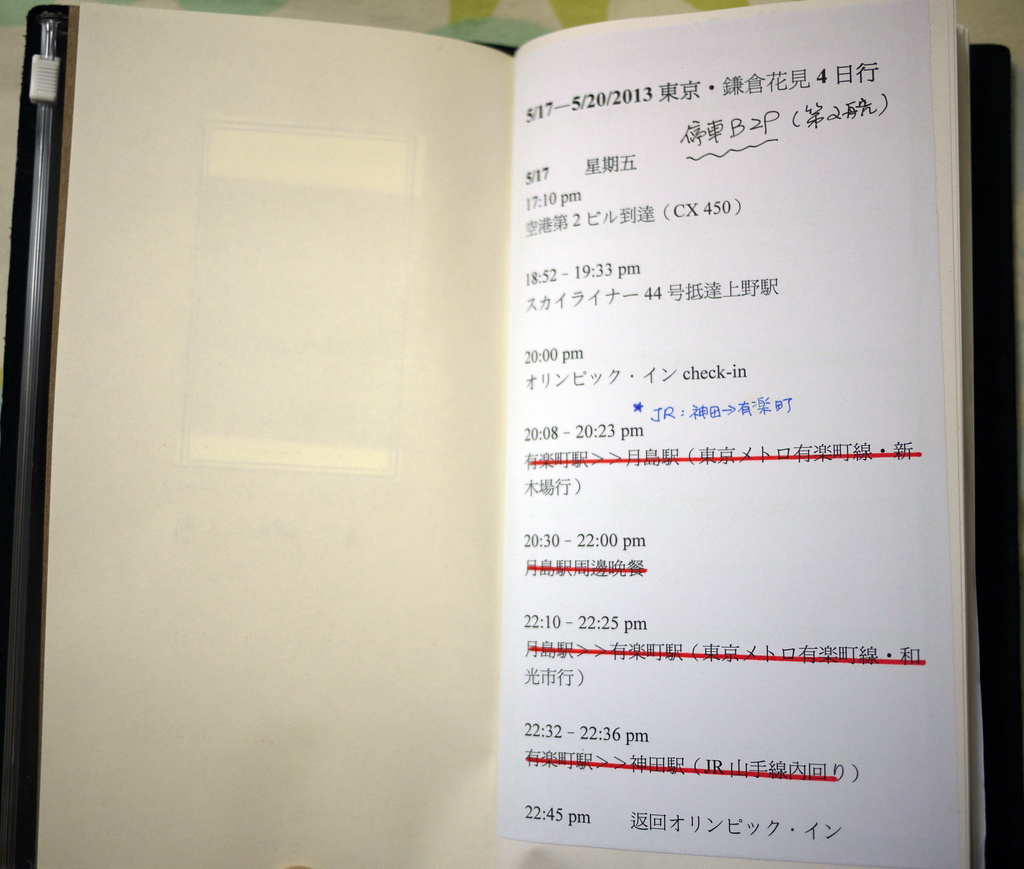 5/17—5/20/2013 東京・鎌倉花見 4 日行
停車 B2P (第2航)
5/17 星期五
17:10 pm
空港第 2 ビル到達（CX 450）
18:52－19:33 pm
スカイライナー 44 号抵達上野駅
20:00 pm
オリンピック・イン check-in
* JR：神田→有楽町
20:08－20:23 pm
有楽町駅＞＞月島駅（東京メトロ有楽町線・新
木場行）
20:30－22:00 pm
月島駅周邊晚餐
22:10－22:25 pm
月島駅＞＞有楽町駅（東京メトロ有楽町線・和
光市行）
22:32－22:36 pm
有楽町駅＞＞神田駅（JR 山手線內回り）
22:45 pm 返回オリンピック・イン